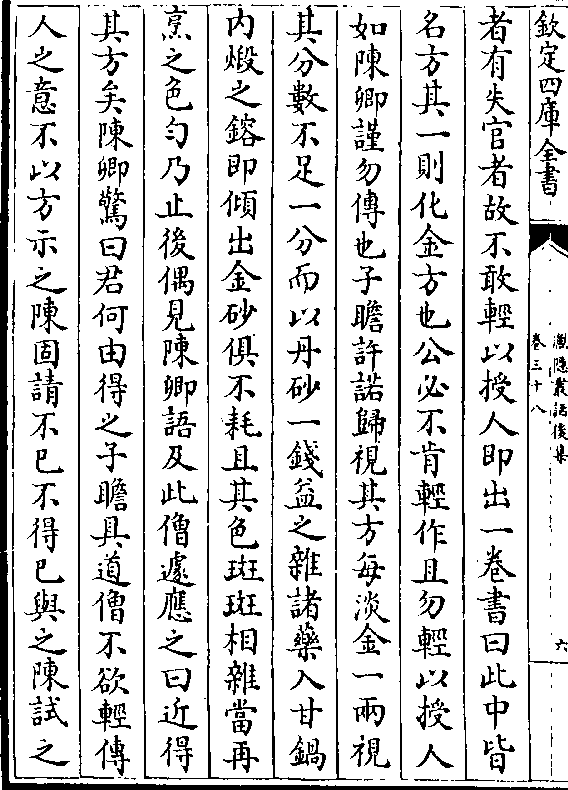 欽定四庫全書
漁隱叢話後集
卷三十八
六
者有失官者故不敢輕以授人即出一卷書曰此中皆
名方其一則化金方也公必不肯輕作且勿輕以授人
如陳卿謹勿傳也子瞻許諾歸視其方每淡金一兩視
其分數不足一分而以丹砂一錢益之雜諸藥入甘鍋
内煅之鎔即傾出金砂俱不耗且其色斑斑相雜當再
烹之色勻乃止後偶見陳卿語及此僧遽應之曰近得
其方矣陳卿驚曰君何由得之子瞻具道僧不欲輕傳
人之意不以方示之陳固請不已不得已與之陳試之